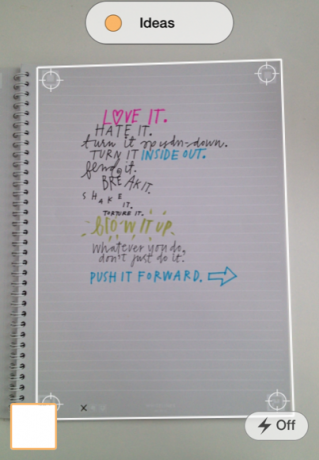 Ideas
LOVE IT.
HATE IT.
turn it upsdn-down.
TURN IT INSIDE OUT.
bend it.
BREAK IT.
SHAKE
IT.
TORTURE IT.
BLOW IT UP.
whatever you do,
don't just do it.
PUSH IT FORWARD.
Off